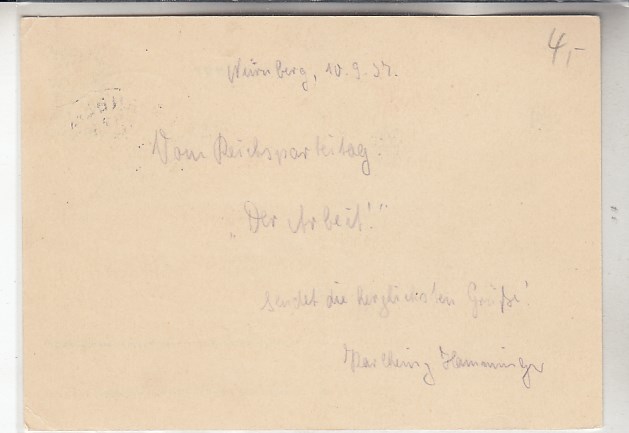 4,-
Nürnberg, 10.9.37.
Vom Reichsparteitag:
„Der Arbeit!"
sendet die herzlichsten Grüße!
Karlheinz